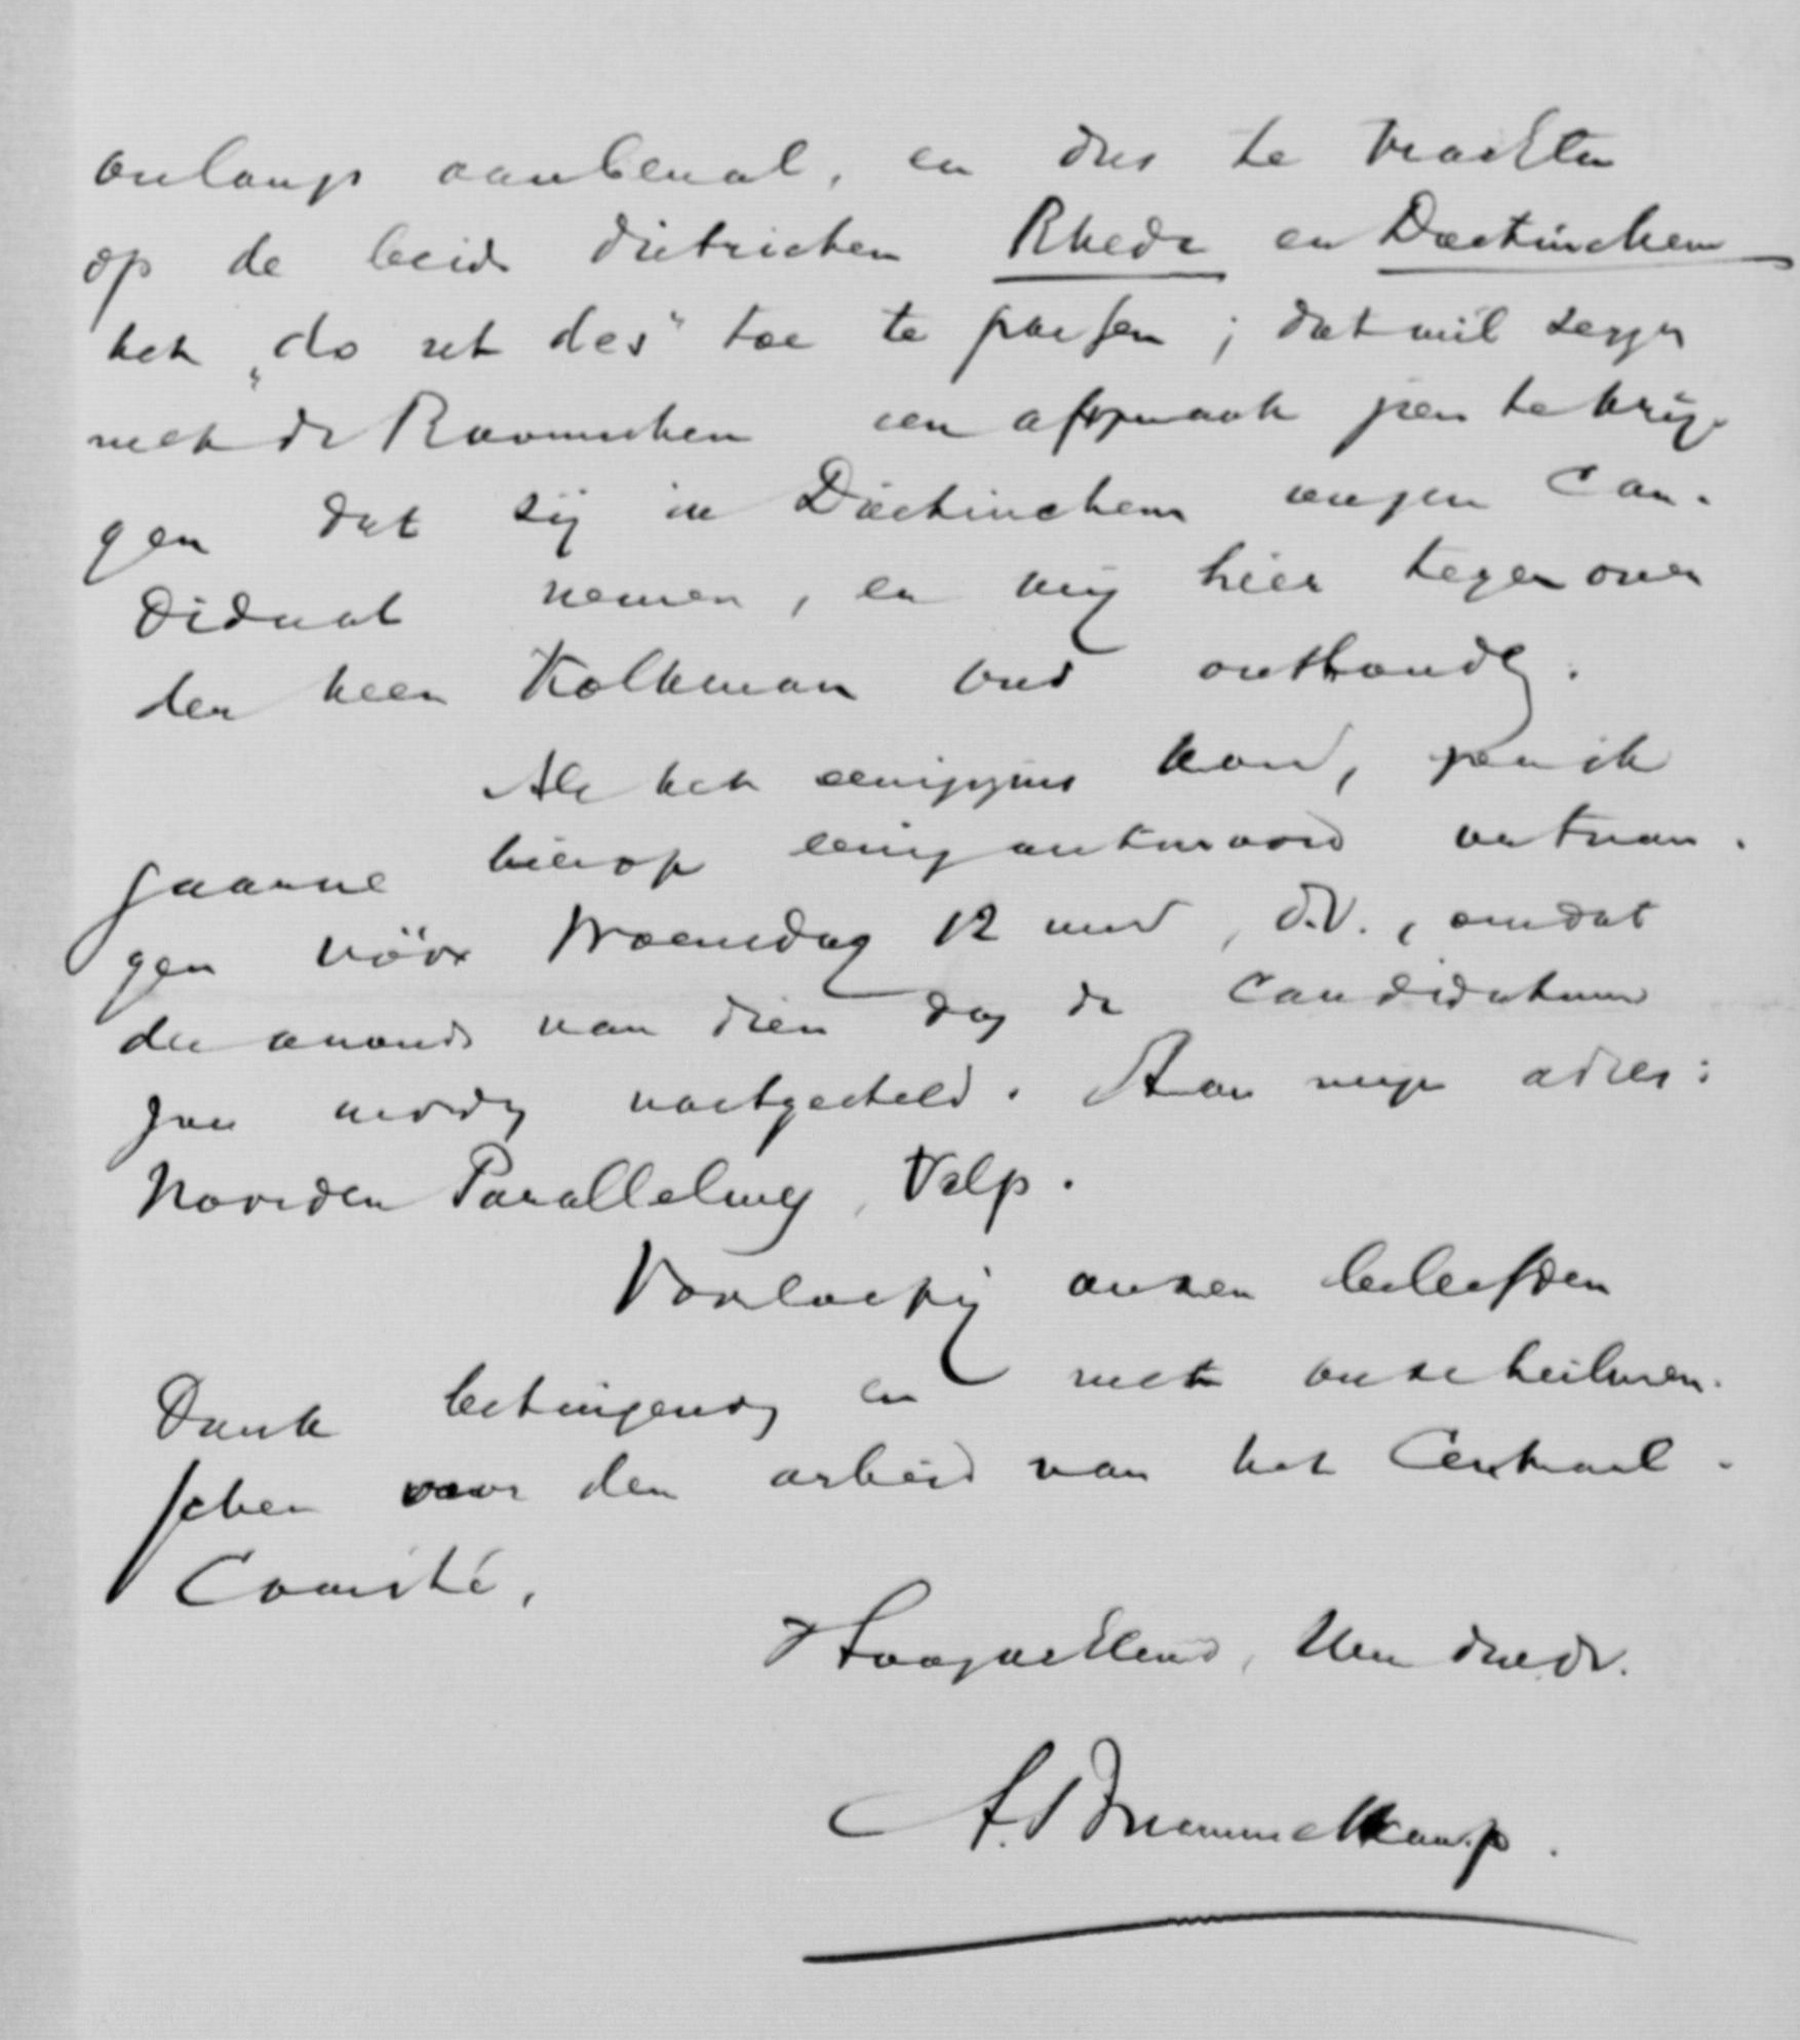 onlangs aanbeval, en dus te trachten
op de beide districten Rhede en Doetinchem
het „do ut des" toe te passen; dat wil zeggen
met de Roomschen een afspraak zien te krij-
gen dat zij in Doetinchem onzen can-
didaat nemen, en wij hier tegenover
den heer Kolkman ons onthouden.
Als het eenigzins kan, zou ik
gaarne hierop eenig antwoord ontvan-
gen vóór Woensdag 12 uur, d.V., omdat
des avonds van dien dag de candidaturen
zou worden vastgesteld. Aan mijn adres:
Noorden Parallelweg, Velp.
Voorloopig onzen beleefden
Dank betuigend, en met onze heilwen-
schen voor den arbeid van het Centraal-
Comité,
Hoogachtend, Uw dwdr.
A. Brummelkamp.